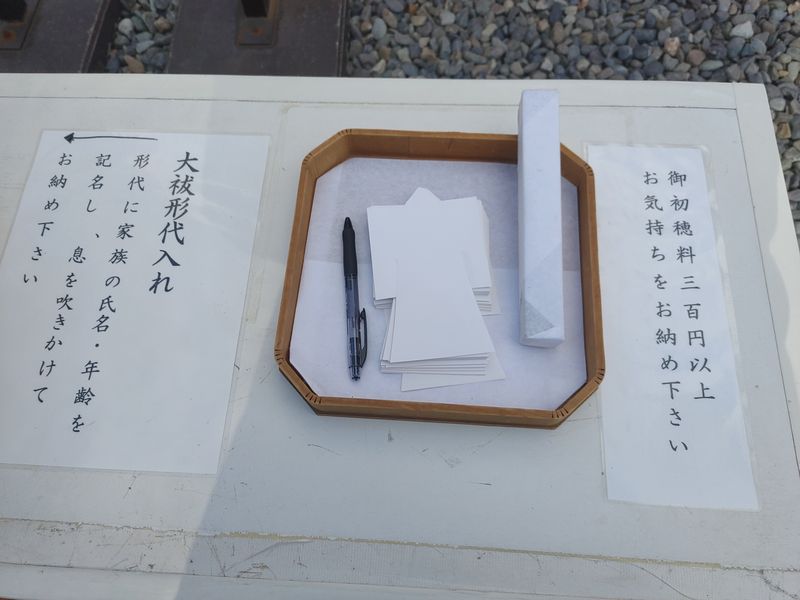 御初穂料三百円以上
お気持ちをお納め下さい
大祓形代入れ
形代に家族の氏名・年齢を
記名し、息を吹きかけて
お納め下さい